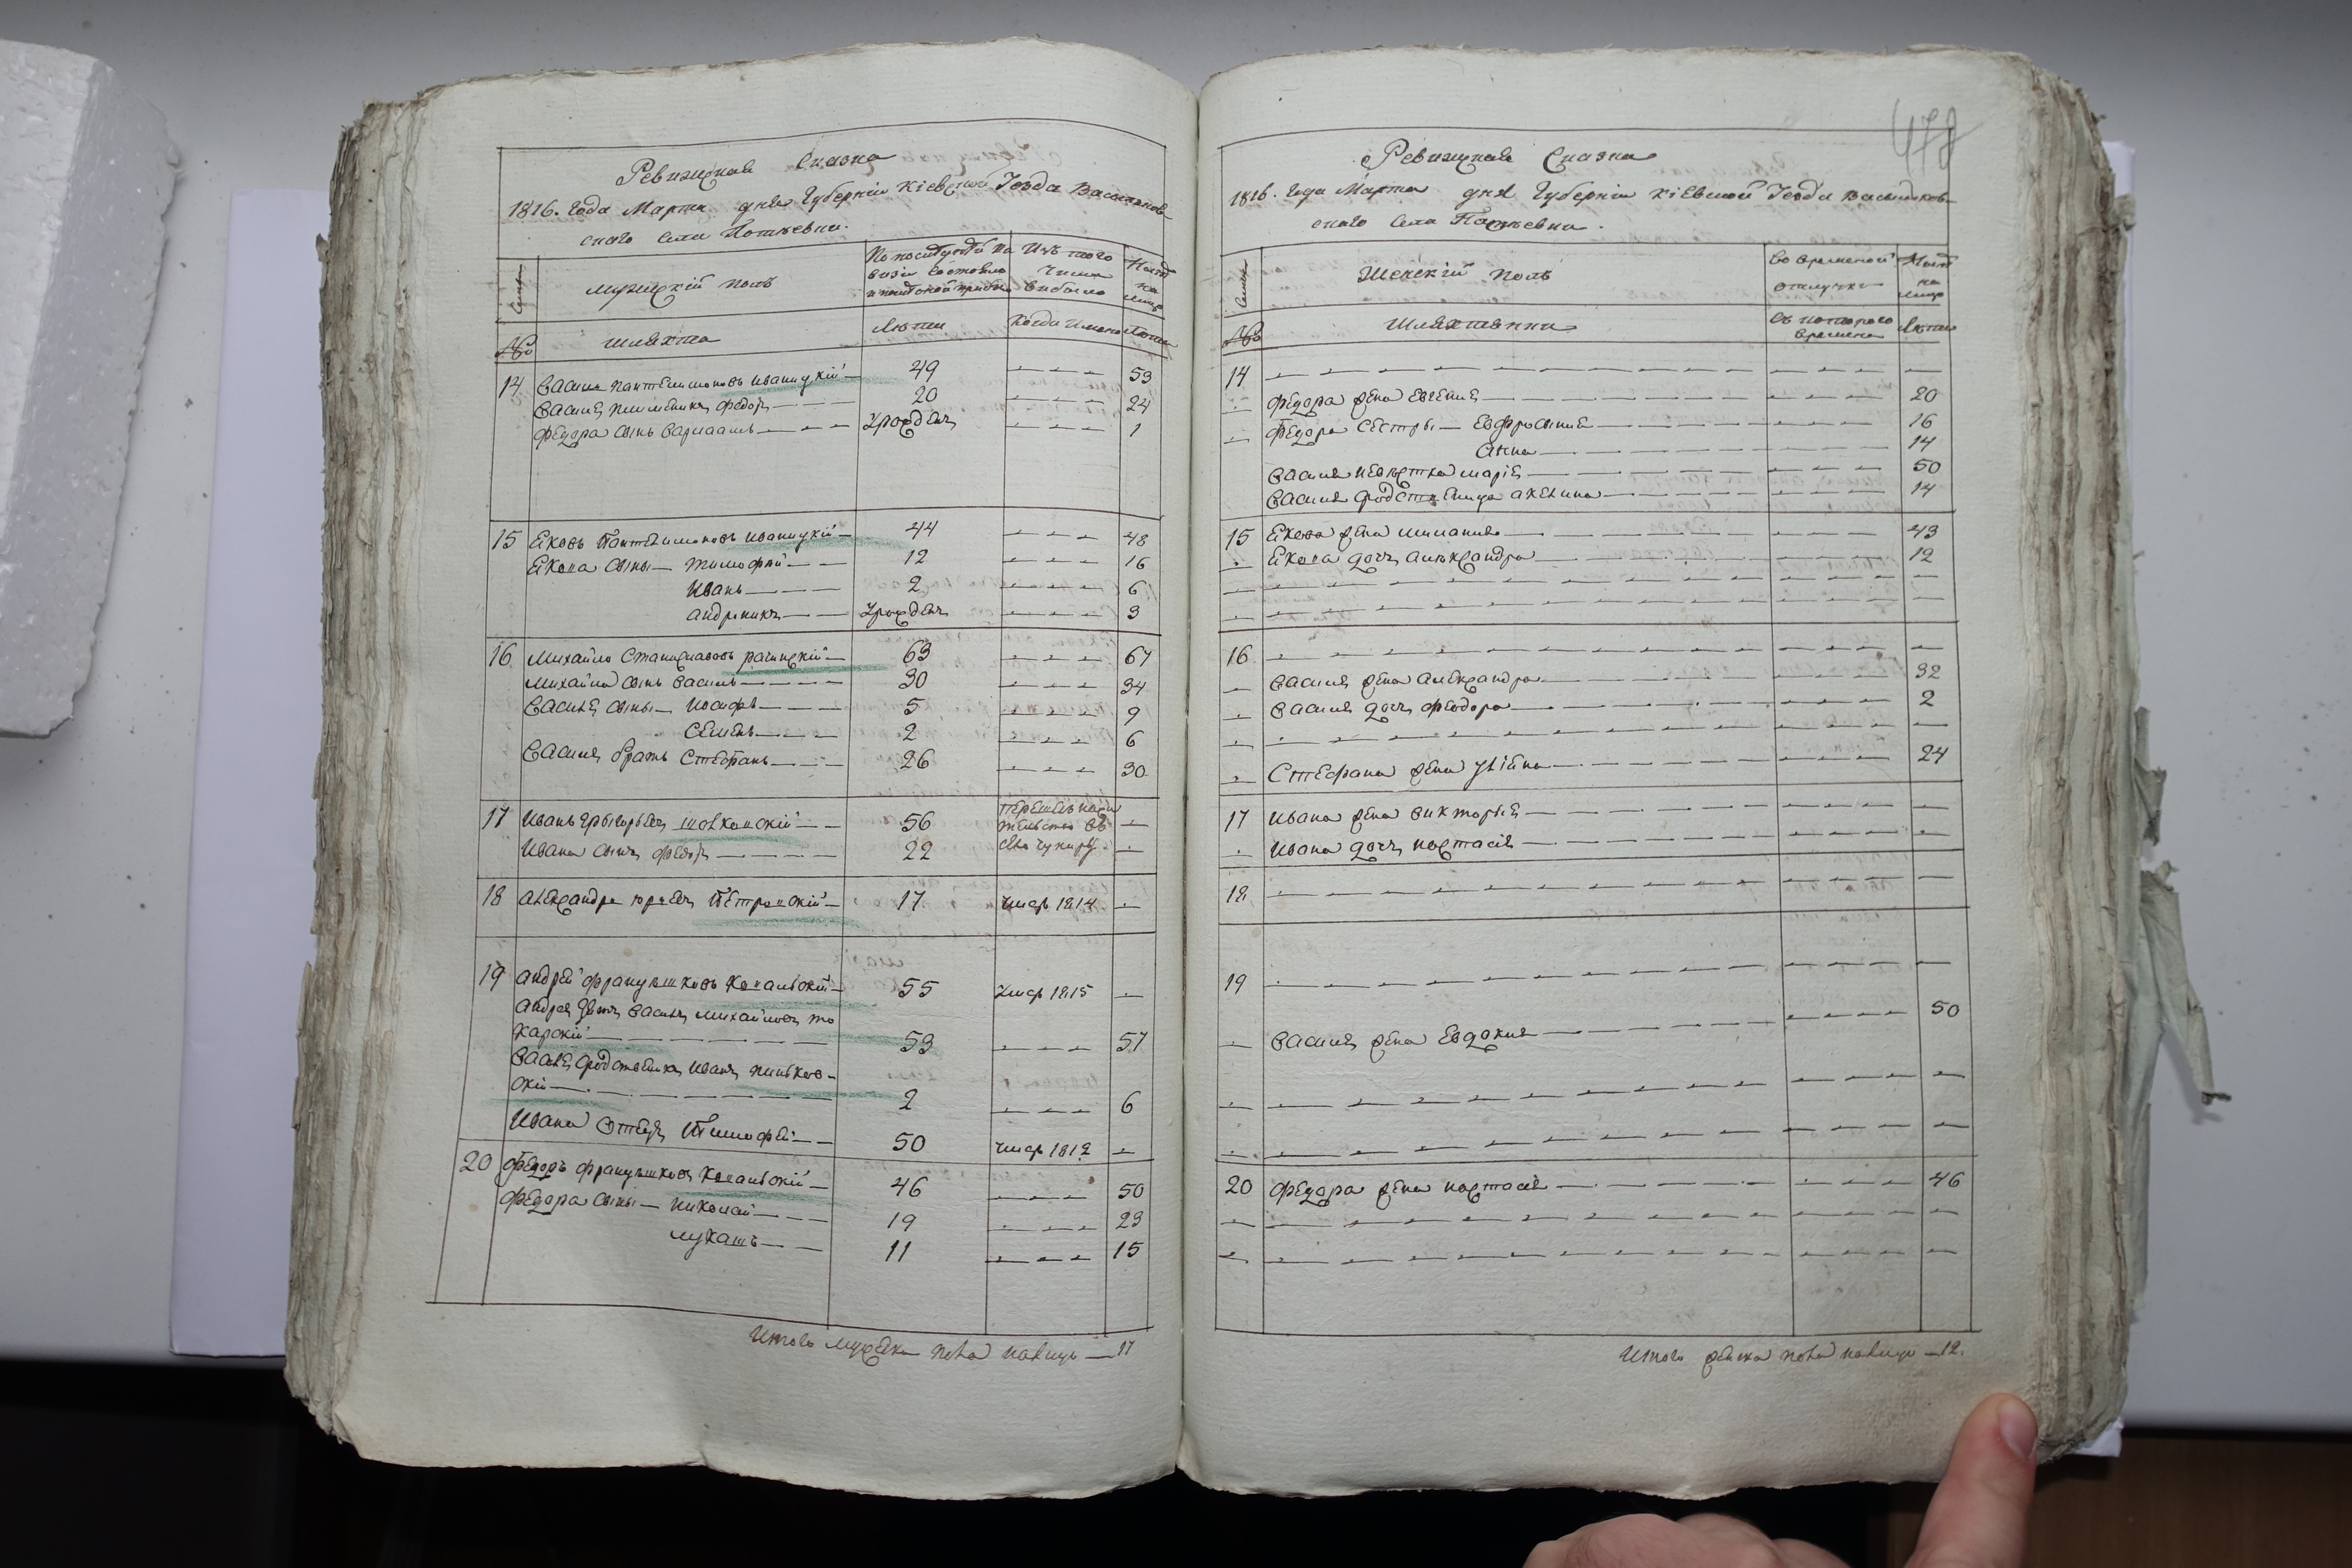 Ревизская Сказка
1816. Года Марта дня Губернiи Кiевской Уезда Васильков-
ского Села
Семьи
Мужескiй полъ
По последней ре
визiи состояло
и после оной прибы
Изъ того
числа
выбыло
Ныне
на
лицо
№
Шляхта
Лета
Когда имено
Лета
14 Василь Пантелимоновъ Иваницкiй — 49 — — — 53
Василя племеникъ Федоръ — — — 20 — — — 24
Федора сынъ Варлаамъ — — — Урожденъ — — — 1
15 Яковъ Пантелимоновъ Иваницкiй — 44 — — — 48
Якова сыны — Тимофей — — 12 — — — 16
Иванъ — — — 2 — — — 6
Андроникъ — — Урожденъ — — — 3
16 Михайло Станиславовъ Рачинскiй — 63 — — — 67
Михайла сынъ Василь — — — — 30 — — — 34
Василя сыны — Иосифъ — — — 5 — — — 9
Семенъ — — — 2 — — — 6
Василя братъ Стефанъ — — — 26 — — — 30
17 Иванъ Григорьевъ — — 56 —
Ивана сынъ Федоръ — — — — 22 —
18 Александръ Юрьевъ Петровскiй — 17 Умер 1814 —
19 Андрей Францышковъ — 55 Умер 1815 —
Андрея зять Василь Михайловъ То
карскiй — — — — — — 53 — — — 57
Василя сродственикъ Иванъ
скiй — — — — — — — 2 — — — 6
Ивана отецъ Тимофей — — 50 Умер 1812 —
20 Федоръ Францышковъ — 46 — — — 50
Федора сыны — Николай — — — 19 — — — 23
Лукашъ — — 11 — — — 15
Итого мужеска пола налицо — 17
478
Ревизская Сказка
1816. Года Марта дня Губернiи Кiевской Уезда Васильков-
ского Села
Семьи
Женскiй полъ
Во временной
отлучке
Ныне
на
лицо
№
Шляхтянки
Съ которого
времени
Лета
14 — — — — — — — — — — —
Федора жена Евгения — — — — — 20
Федора сестры — Евфросиния — — — 16
Анна — — — — 14
Василя невестка Мария — — — — 50
Василя сродственица Акелина — — — 14
15 Якова жена Меланiя — — — — 43
Якова дочь Александра — — — — 12
16 — — — — — — — — — — —
Василя жена Александра — — — — 32
Василя дочь Феодора — — — — 2
Стефана жена Улiяна — — — — 24
17 Ивана жена Виктория — — — — —
Ивана дочь Настасiя — — — — —
18 — — — — — — — — — — —
19 — — — — — — — — — — —
Василя жена Евдокия — — — — 50
20 Федора жена Настасiя — — — — 46
Итого женска пола налицо — 12.